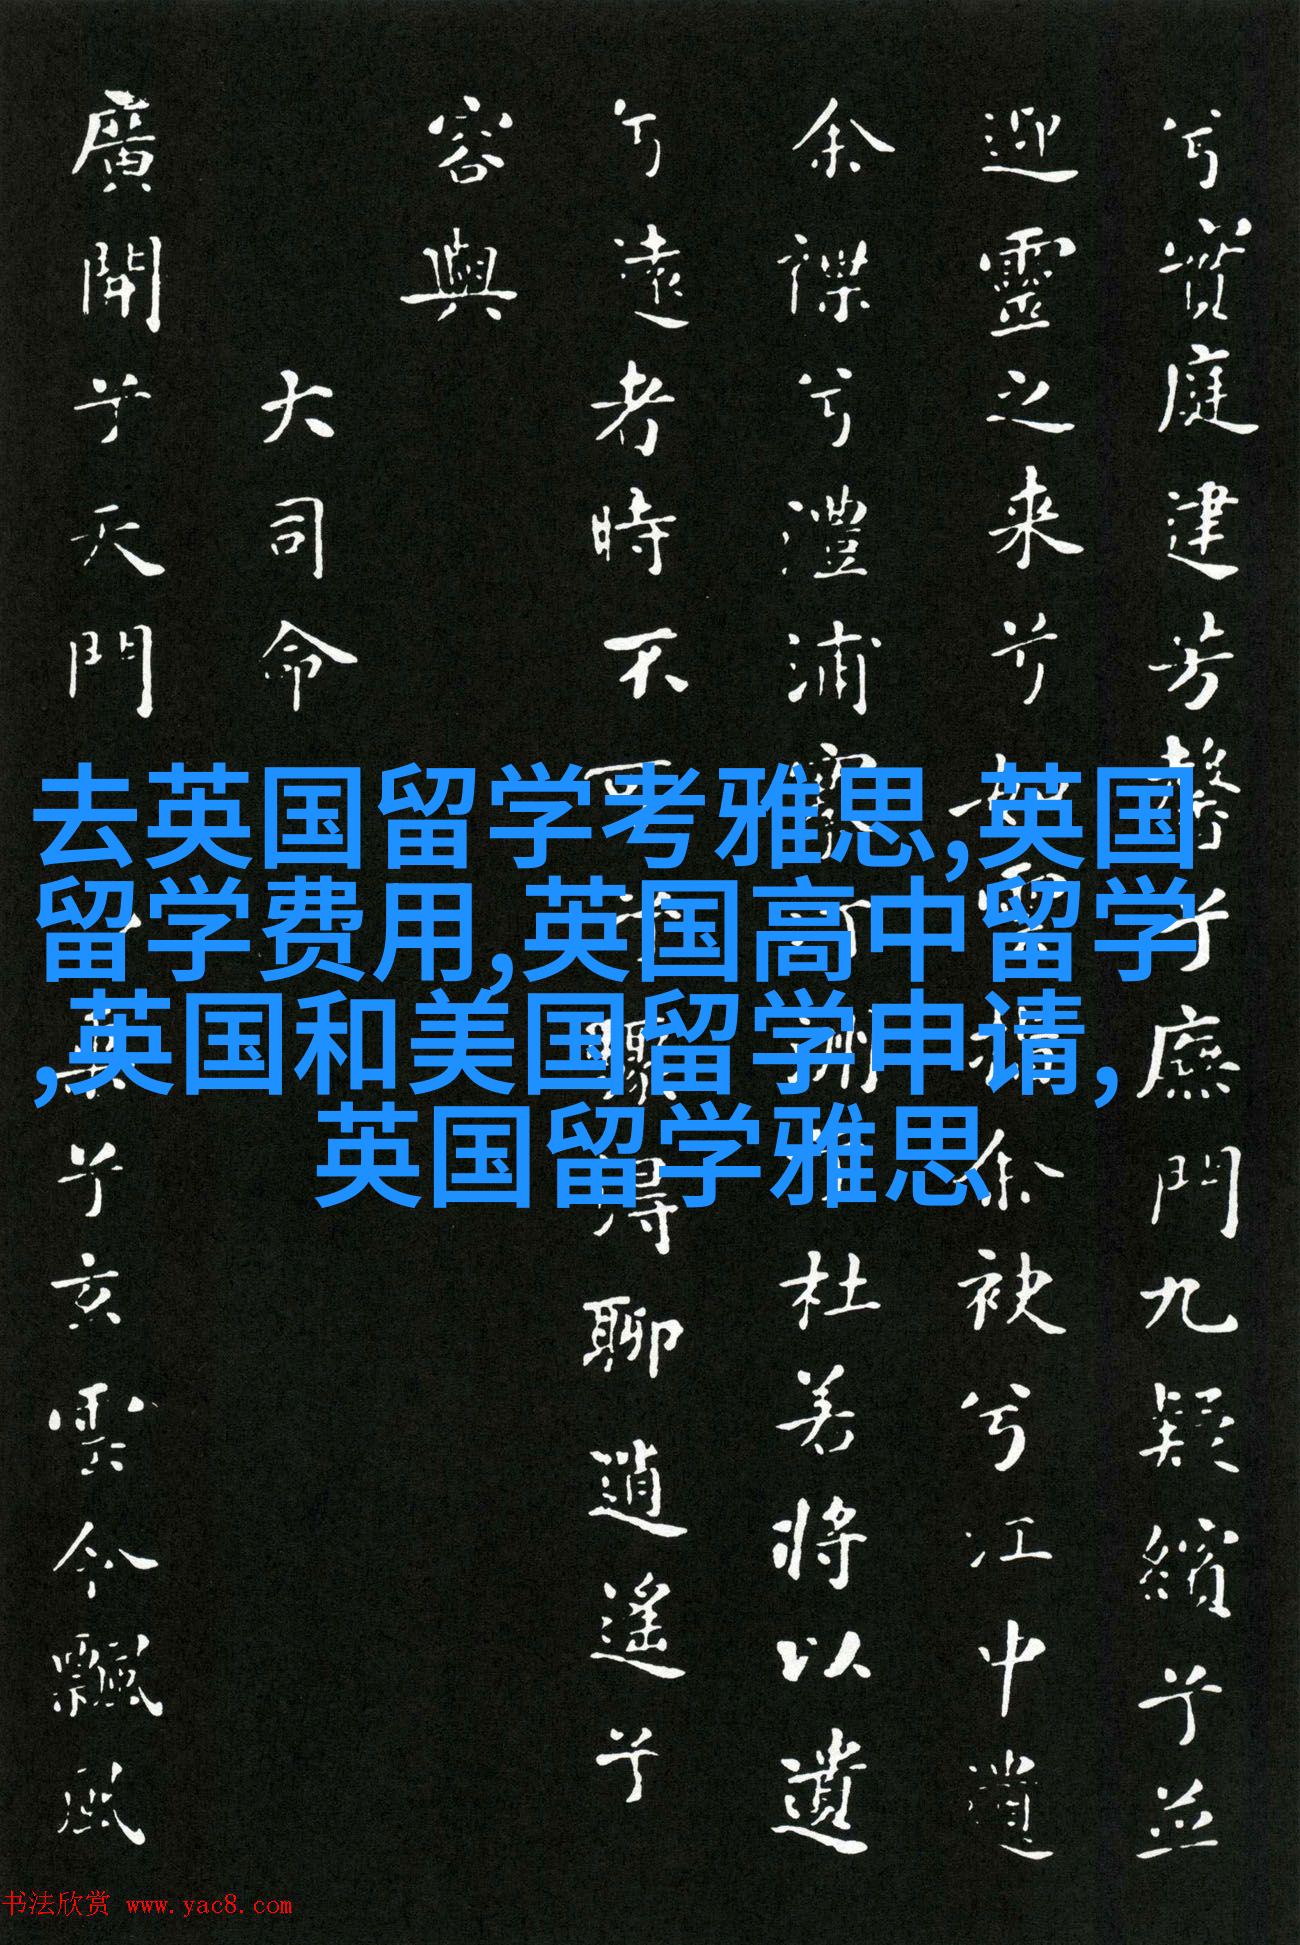 兮實庭建芳馨兮廡門九疑繽兮並
迎靈之来兮如雲捐余袂兮江中遺
余褋兮澧浦搴汀洲兮杜若將以遺
兮遠者時不可兮驟得聊逍遙兮
容與
大司命
廣開兮天門乘兮玄雲令飄風
去英国留学考雅思,英国
留学费用,英国高中留学
,英国和美国留学申请,
英国留学雅思
书法欣赏 www.yac8.com